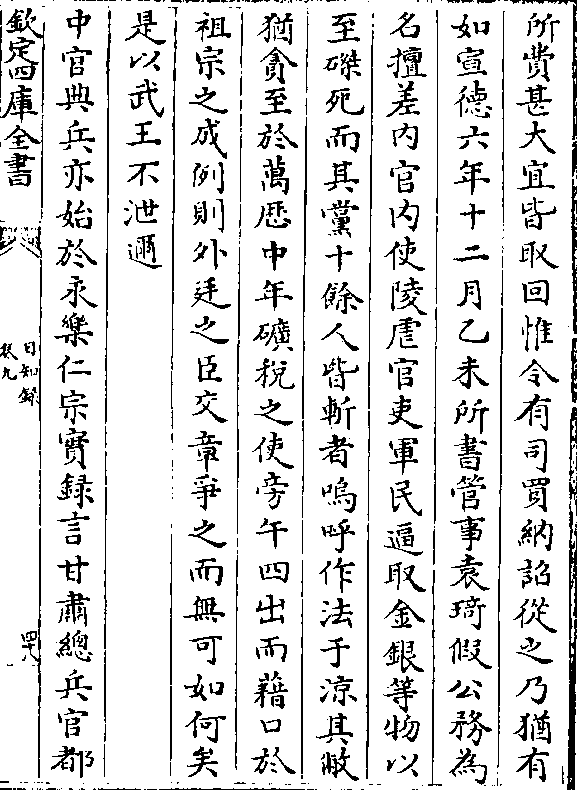 所費甚大宜皆取回惟令有司買納詔從之乃猶有
如宣德六年十二月乙未所書管事袁琦假公務為
名擅差内官内使陵虐官吏軍民逼取金銀等物以
至磔死而其黨十餘人皆斬者嗚呼作法于涼其敝
猶貪至於萬厯中年礦稅之使旁午四出而藉口於
祖宗之成例則外廷之臣交章爭之而無可如何矣
是以武王不泄邇
中官典兵亦始於永樂仁宗實録言甘肅總兵官都
欽定四庫全書
日知録
卷九
四八